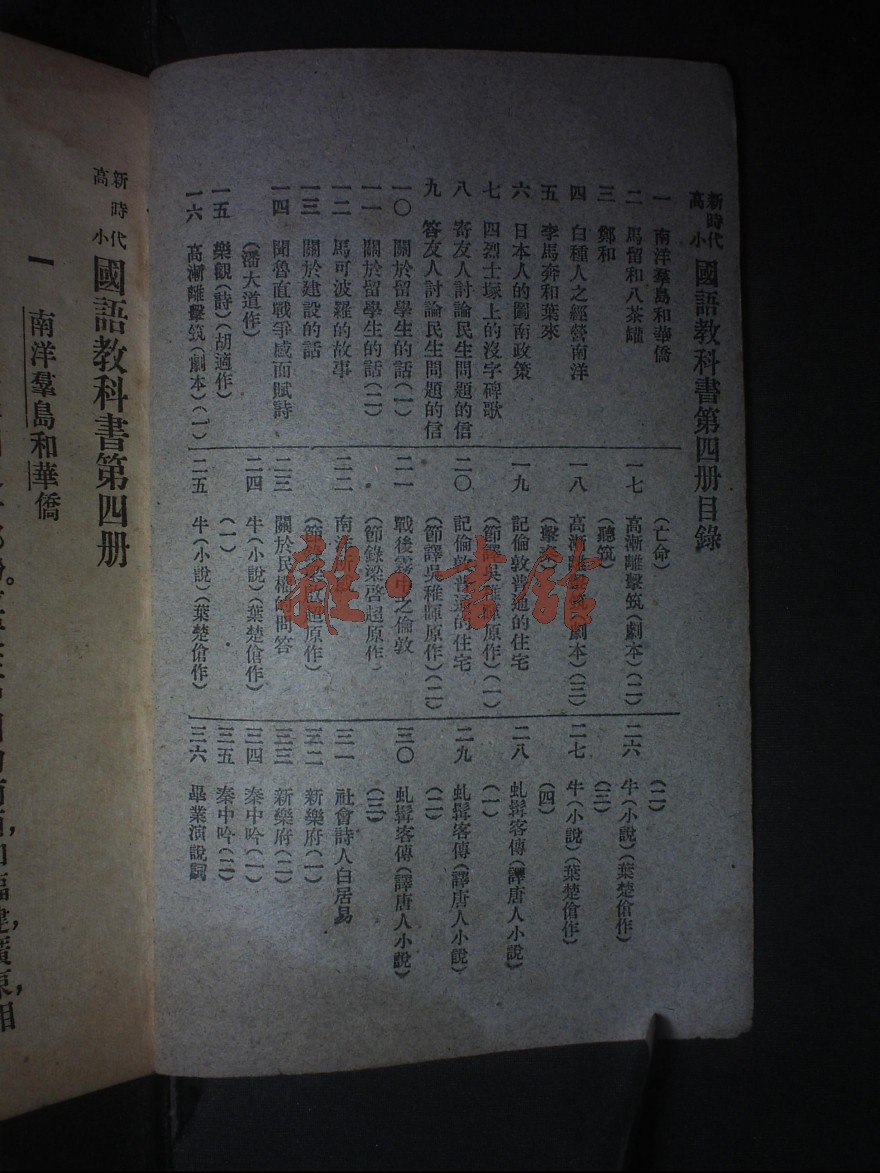 新時代高小 國語教科書第四册目錄
一 南洋羣島和華僑
二 馬留和八茶罐
三 鄭和
四 白種人之經營南洋
五 李馬奔和葉來
六 日本人的圖南政策
七 四烈士塚上的沒字碑歌
八 寄友人討論民生問題的信
九 答友人討論民生問題的信
一〇 關於留學生的話(一)
一一 關於留學生的話(二)
一二 馬可波羅的故事
一三 關於建設的話
一四 聞魯直戰爭感而賦詩
(潘大道作)
一五 樂觀(詩)(胡適作)
一六 高漸離擊筑(劇本)(一)
(亡命)
一七 高漸離擊筑(劇本)(二)
(聽筑)
一八 高漸離擊筑(劇本)(三)
(擊
一九 記倫敦普通的住宅
(節譯吳稚暉原作)(一)
二〇 記倫敦普通的住宅
(節譯吳稚暉原作)(二)
二一 戰後霧中之倫敦
(節錄梁啓超原作)
二二 南洋
(節 超原作)
二三 關於民權的問答
二四 牛(小說)(葉楚傖作)
(一)
二五 牛(小說)(葉楚傖作)
(二)
二六 牛(小說)(葉楚傖作)
(三)
二七 牛(小說)(葉楚傖作)
(四)
二八 虬髯客傳(譯唐人小說)
(一)
二九 虬髯客傳(譯唐人小說)
(二)
三〇 虬髯客傳(譯唐人小說)
(三)
三一 社會詩人白居易
三二 新樂府(一)
三三 新樂府(二)
三四 秦中吟(一)
三五 秦中吟(二)
三六 畢業演說詞
新時代高小 國語教科書第四册
一 南洋羣島和華僑
雜·書館